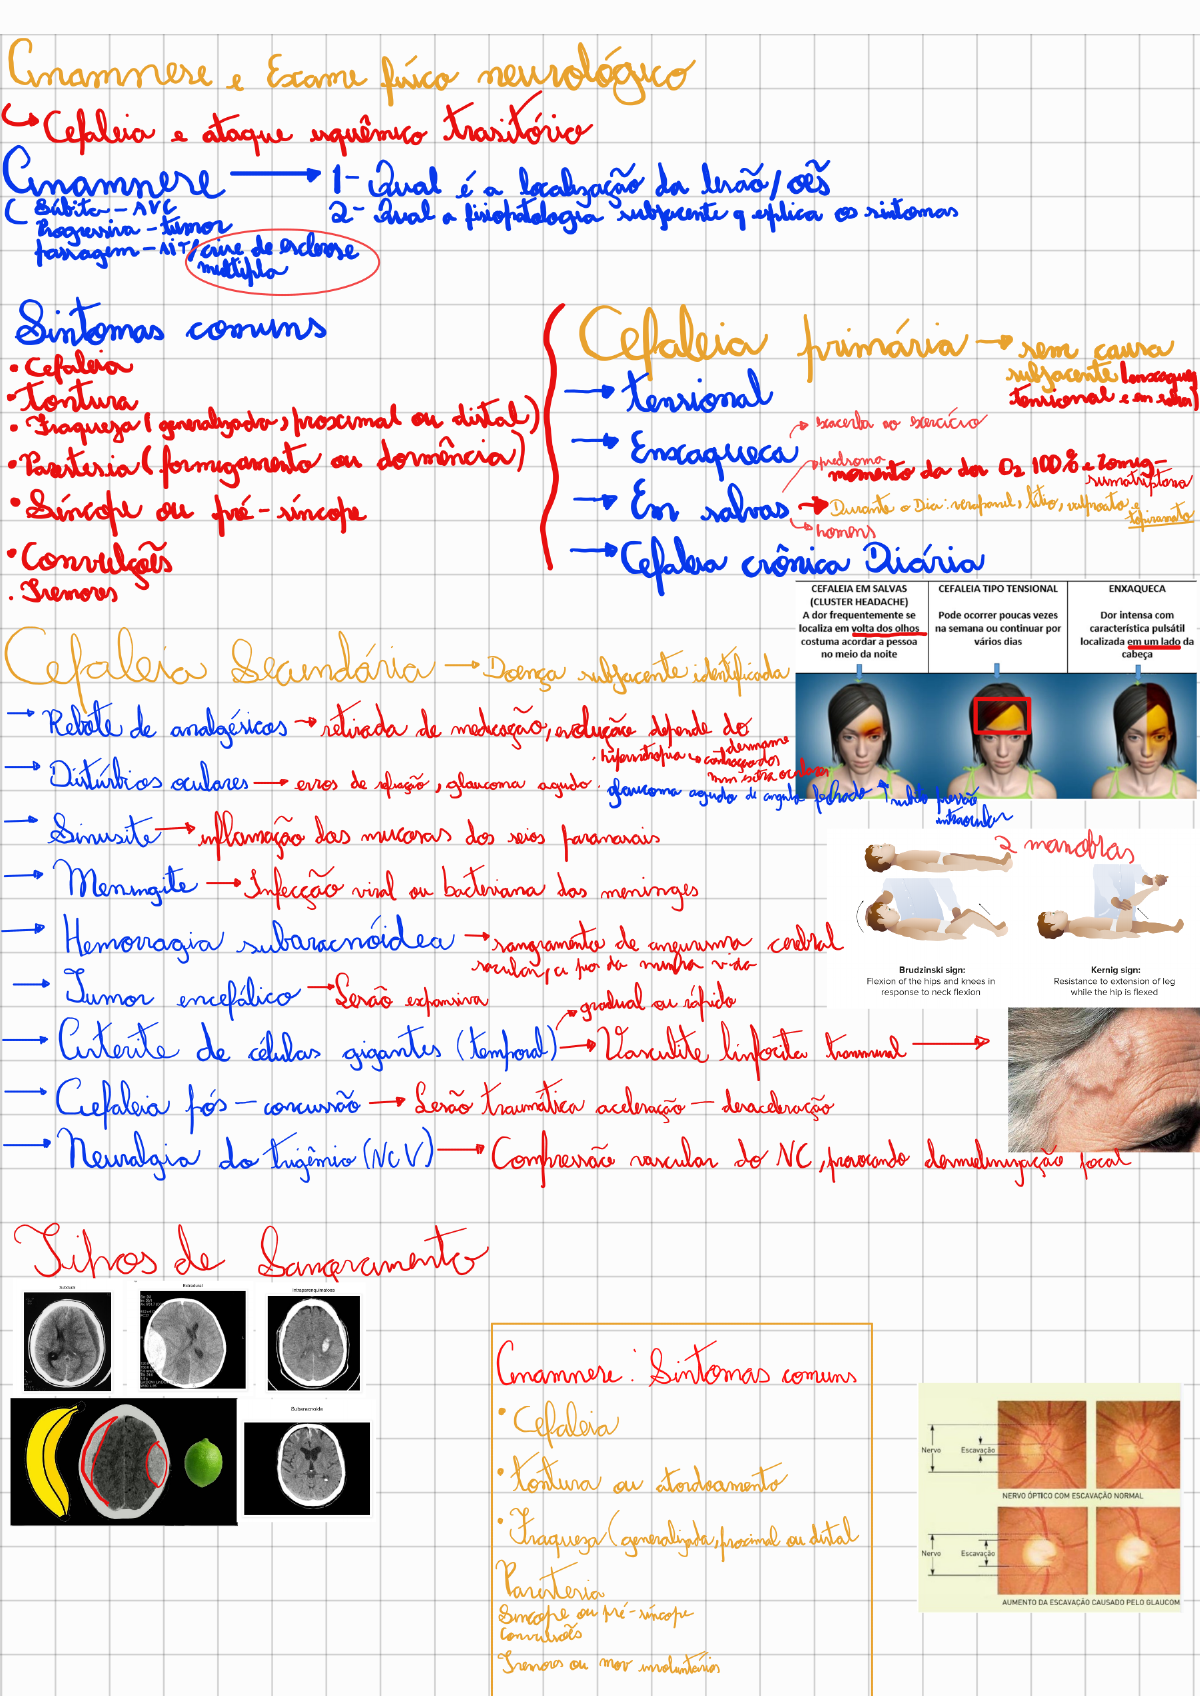 Anamnese e Exame físico neurológico
Cefaleia e ataque isquêmico trasitório
Anamnese
1- Qual é a localização da lesão/oẽs
2- Qual a fisiopatologia subjacente q explica os sintomas
Súbita - AVC
Progressiva - tumor
passagem - AIT/crise de esclerose
multipla
Sintomas comuns
• Cefaleia
• Tontura
• Fraqueza (generalizada, proximal ou distal)
• Parestesia (formigamento ou dormência)
• Síncope ou pré-síncope
• Convulções
. Tremores
Cefaleia primária → sem causa
subjacente (enxaqueca
tensional e em salvas)
→ tensional
→ Enxaqueca
→ Em salvas
exacerba ao exercício
predroma
momento da dor O2 100% e Zomig-
sumatriptana
Durante o Dia: verapamil, lítio, valproato e
topiramato
homens
→ Cefaleia crônica Diária
CEFALEIA EM SALVAS
(CLUSTER HEADACHE)
A dor frequentemente se
localiza em volta dos olhos
costuma acordar a pessoa
no meio da noite
CEFALEIA TIPO TENSIONAL
Pode ocorrer poucas vezes
na semana ou continuar por
vários dias
ENXAQUECA
Dor intensa com
característica pulsátil
localizada em um lado da
cabeça
Cefaleia Secundária → Doença subjacente identificada
→ Rebote de analgésicos → retirada de medicação, evolução depende do
→ Distúrbios oculares → erros de refração, glaucoma agudo
. hipermetropia → contração dos
mm extra oculares
glaucoma agudo de angulo fechado ↑ súbito pressão
intraocular
→ Sinusite → inflamação das mucosas dos seios paranasais
→ Meningite → Infecção viral ou bacteriana das meninges
→ Hemorragia subaracnóidea → sangramento de aneurisma cerebral
sacular, a pior da minha vida
→ Tumor encefálico → Lesão expansiva
gradual ou rápido
→ Arterite de células gigantes (temporal) → Vasculite linfocita transmural
→ Cefaleia pós-concussão → Lesão traumática aceleração - desaceleração
→ Neuralgia do trigêmio (NcV) → Compressão vascular do NC, provocando desmielinização focal
2 manobras
Brudzinski sign:
Flexion of the hips and knees in
response to neck flexion
Kernig sign:
Resistance to extension of leg
while the hip is flexed
Tipos de Sangramento
Subdural
Extradural
Intraparenquimatoso
Subaracnoide
Anamnese: Sintomas comuns
• Cefaleia
• tontura ou atordoamento
• Fraqueza (generalizada, proximal ou distal
Parestesia
Síncope ou pré-síncope
Convulsões
Tremores ou mov involuntários
Nervo
Escavação
NERVO ÓPTICO COM ESCAVAÇÃO NORMAL
Nervo
Escavação
AUMENTO DA ESCAVAÇÃO CAUSADO PELO GLAUCOM